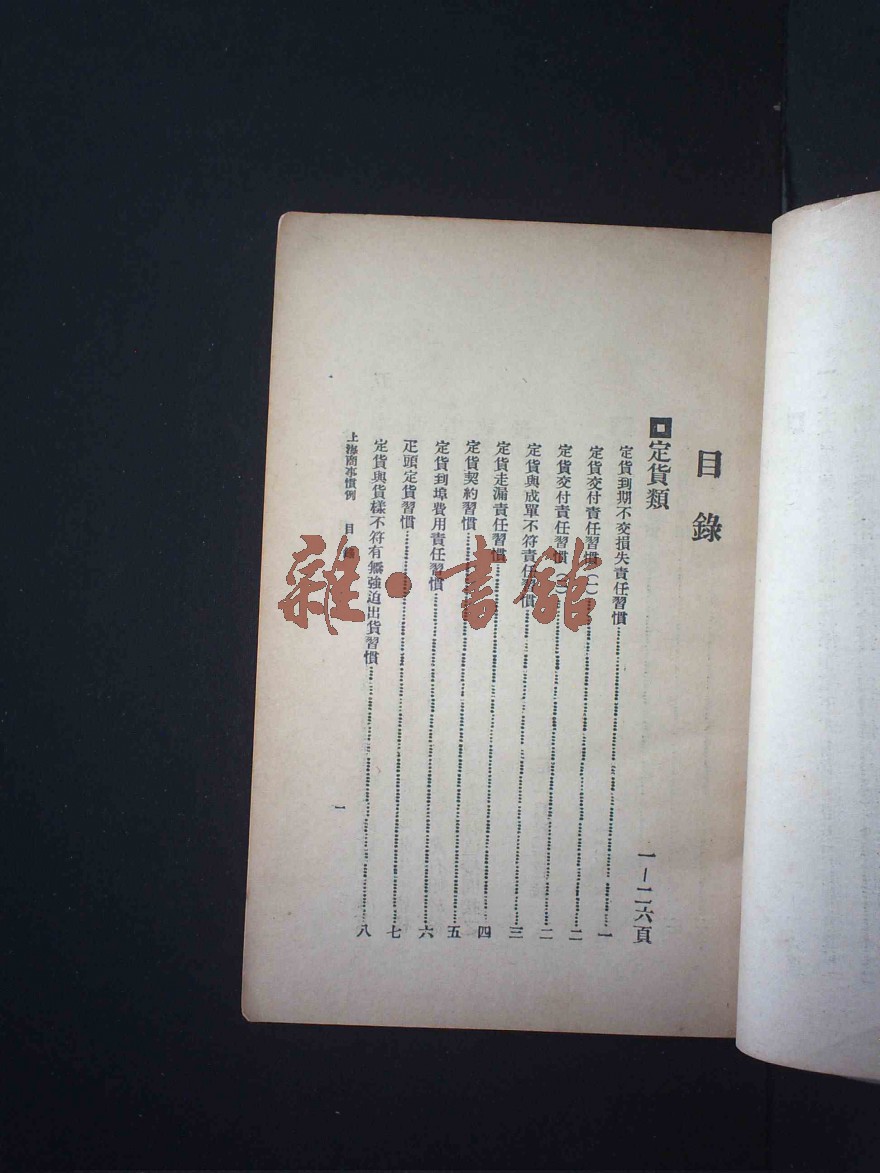 目錄
定貨類 一—二六頁
定貨到期不交損失責任習慣 一
定貨交付責任習慣(一) 二
定貨交付責任習慣 二
定貨與成單不符責任習慣 三
定貨走漏責任習慣 四
定貨契約習慣 五
定貨到埠費用責任習慣 六
疋頭定貨習慣 七
定貨與貨樣不符有無強迫出貨習慣 八
上海商事慣例 目錄 一
雜·書館